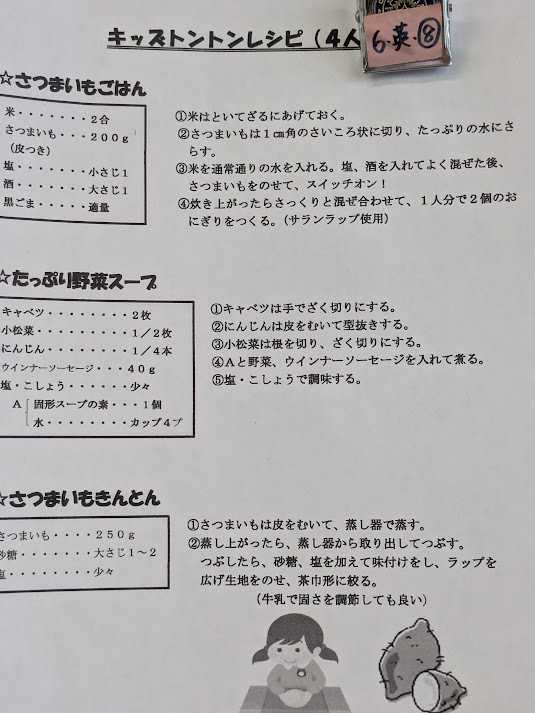 キッズトントンレシピ（４人
6.英.⑧
☆さつまいもごはん
米・・・・・・・２合
さつまいも・・２００ｇ
（皮つき）
塩・・・・・・・小さじ１
酒・・・・・・・大さじ１
黒ごま・・・・・適量
①米はといてざるにあげておく。
②さつまいもは１㎝角のさいころ状に切り、たっぷりの水にさ
らす。
③米を通常通りの水を入れる。塩、酒を入れてよく混ぜた後、
さつまいもをのせて、スイッチオン！
④炊き上がったらさっくりと混ぜ合わせて、１人分で２個のお
にぎりをつくる。（サランラップ使用）
☆たっぷり野菜スープ
キャベツ・・・・・・・・２枚
小松菜・・・・・・・・１／２枚
にんじん・・・・・・・１／４本
ウインナーソーセージ・・・４０ｇ
塩・こしょう・・・・・・少々
Ａ 固形スープの素・・・１個
水・・・・・・・・カップ４
①キャベツは手でざく切りにする。
②にんじんは皮をむいて型抜きする。
③小松菜は根を切り、ざく切りにする。
④Ａと野菜、ウインナーソーセージを入れて煮る。
⑤塩・こしょうで調味する。
☆さつまいもきんとん
さつまいも・・・・２５０ｇ
砂糖・・・・・・・大さじ１～２
塩・・・・・・・・少々
①さつまいもは皮をむいて、蒸し器で蒸す。
②蒸し上がったら、蒸し器から取り出してつぶす。
つぶしたら、砂糖、塩を加えて味付けをし、ラップを
広げ生地をのせ、茶巾形に絞る。
（牛乳で固さを調節しても良い）